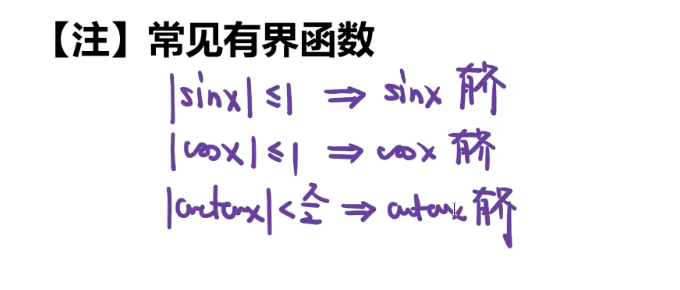 【注】常见有界函数
|sinx| ≤ 1 ⇒ sinx 有界
|cosx| ≤ 1 ⇒ cosx 有界
|arctanx| < π/2 ⇒ arctanx 有界